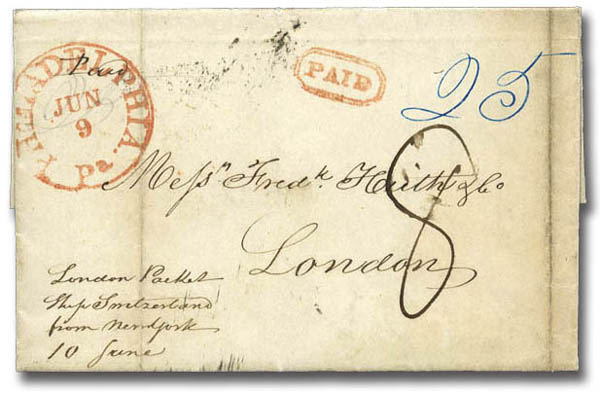 PHILADELPHIA Pa.
JUN
9
Paid
PAID
25
Messrs. Fredk. Huth & Co
8
London
London Packet
Ship Switzerland
from New York
10 June